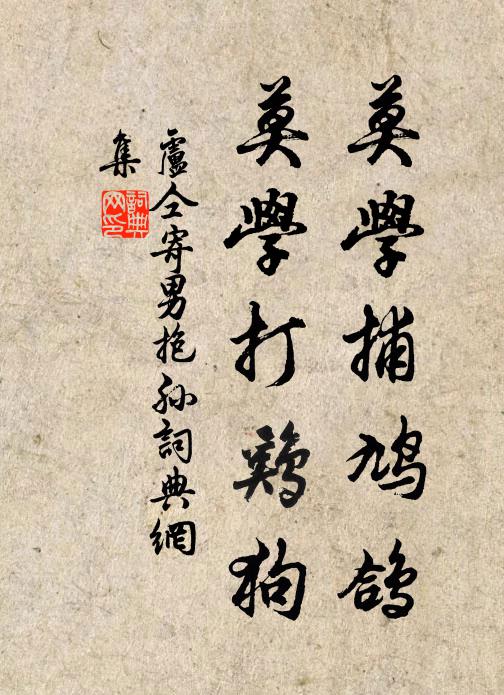 莫學捕鳩鴿
莫學打鷄狗
盧仝寄男抱孫詞典網
集
詞典
网印